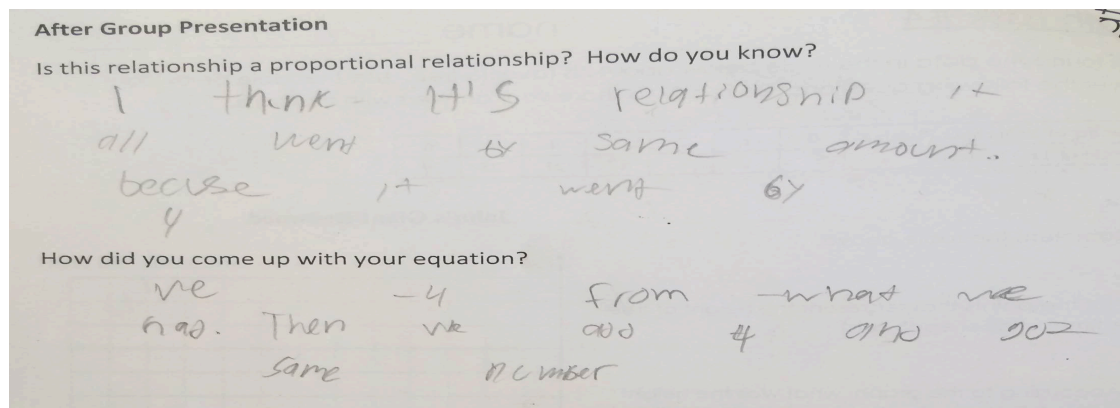 After Group Presentation
Is this relationship a proportional relationship? How do you know?
I think It's relationship it
all went by same amount..
becuse it went by
4
How did you come up with your equation?
we -4 from what we
had. Then we add 4 and got
same number